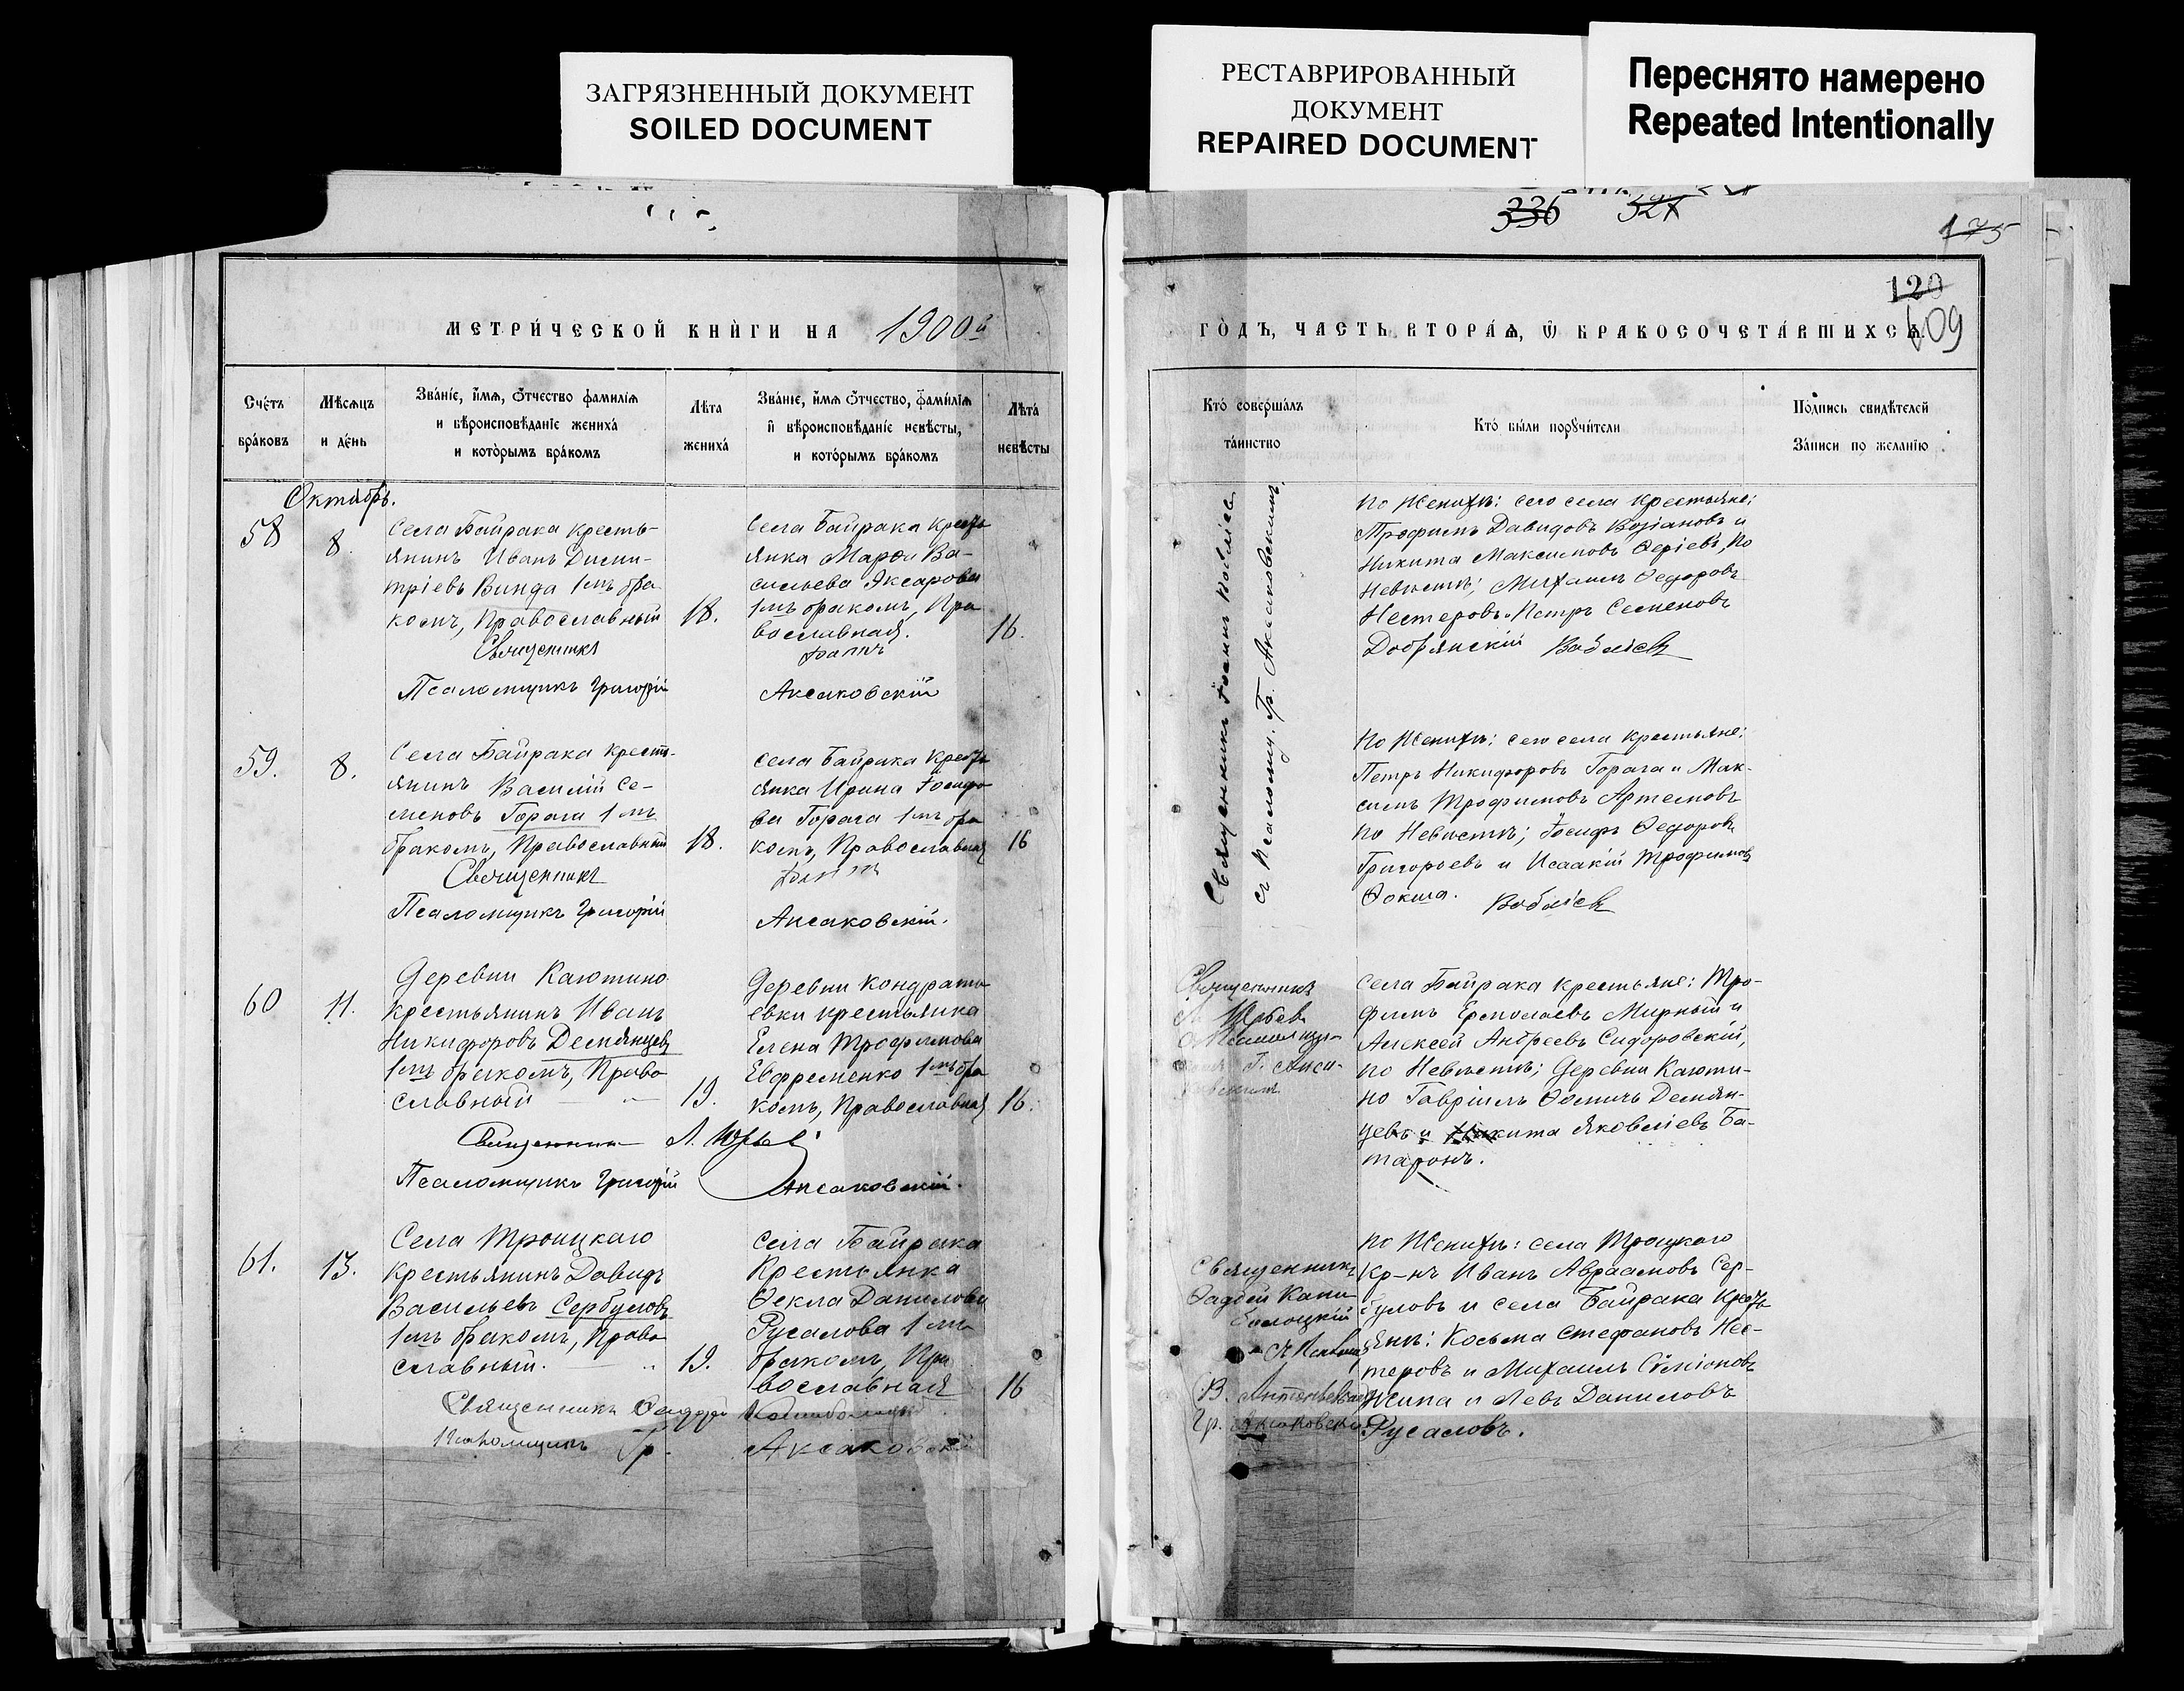 ЗАГРЯЗНЕННЫЙ ДОКУМЕНТ
SOILED DOCUMENT
РЕСТАВРИРОВАННЫЙ
ДОКУМЕНТ
REPAIRED DOCUMENT
Переснято намерено
Repeated Intentionally
336 327
175
120
109
МЕТРИ́ЧЕСКОЙ КНИ́ГИ НА 1900й
ГО́ДЪ, ЧАСТЬ ВТОРА́Ѧ, Ѿ БРАКОСОЧЕТА́ВШИХСѦ.
Сче́тъ
бра́ковъ
Мѣсѧцъ
и де́нь
Зва́нїе, и҆́мѧ, ѻ҆́тчество фамилїѧ
и вѣроисповѣ́данїе жениха́
и кото́рымъ бра́комъ
Лѣта
жениха́
Зва́нїе, и҆́мѧ ѻ҆́тчество, фами́лїѧ
и҆ вѣроисповѣ́данїе невѣ́сты,
и кото́рымъ бра́комъ
Лѣта́
невѣ́сты
Кто́ соверша́лъ
та́инство
Кто́ бы́ли порꙋчи́тели
По́дпись свидѣ́телей
За́писи по жела́нїю
Октябрь.
58
8.
Села Байрака кресть-
янинъ Иванъ Дими-
тріевъ Винда 1мъ бра
комъ, Православный
18.
Священникъ
Псаломщикъ Григорій
Села Байрака кресть
янка Марѳа Ва-
сильева Аксарова
1мъ бракомъ, Пра
вославная.
16.
Аксаковскій
Священникъ Іоаннъ Вобліевъ
съ Псаломщ. Гр. Аксаковскимъ.
По Женихѣ: сего села крестьяне:
Трофимъ Давидовъ Возіановъ и
Никита Максимовъ Сергіевъ, По
Невѣстѣ; Михаилъ Ѳедоровъ
Нестеровъ и Петръ Семеновъ
Добрянскій Вобліевъ
59.
8.
Села Байрака крестъ-
янинъ Василій Се-
меновъ Горага 1мъ
бракомъ, Православный
18.
Священникъ
Псаломщикъ Григорій
Села Байрака кресть
янка Ирина Іосифо
ва Горага 1мъ бра
комъ, Православная
16
Аксаковскій.
По Женихѣ: сего села крестьяне:
Петръ Никифоровъ Горага и Мак-
симъ Трофимовъ Артемовъ
по Невѣстѣ; Іосифъ Ѳедоровъ
Григорьевъ и Исаакій Трофимовъ
Ѳокша. Вобліевъ
60
11.
Деревни Каютино
Крестьянинъ Иванъ
Никифоровъ Демянцевъ
1мъ бракомъ, Право
славный
19.
Священникъ Л. Юрьевъ
Псаломщикъ Григорій
Деревни Кондрать
евки крестьянка
Елена Трофимова
Ефременко 1мъ бра
комъ, Православная
16.
Аксаковскій.
Священникъ
Л. Юрьевъ
Села Байрака крестьяне: Тро-
фимъ Ермолаевъ Мирный и
Алексей Андреевъ Сидоровскій,
по Невѣстѣ; Деревни Каюти-
но Гавріилъ Ѳомичъ Демян-
цевъ и Никита Яковлевъ Ба-
таронъ.
61.
13.
Села Троицкаго
Крестьянинъ Давидъ
Васильевъ Сербуловъ
1мъ бракомъ, Право
славный.
19.
Священникъ Ѳаддей
Псаломщикъ Гр.
Села Байрака
Крестьянка
Ѳекла Данилова
Русалова 1мъ
бракомъ, Пра
вославная
16
Аксаковскій
Священникъ
Ѳаддей
Гр. Аксаковскій
по Женихѣ: села Троцкаго
Кр-нъ Иванъ Авраамовъ Сер-
буловъ и села Байрака кресть
янѣ: Косьма Стефановъ Нес-
теровъ и Михаилъ Симіоновъ
Жила и Левъ Даниловъ
Русаловъ.